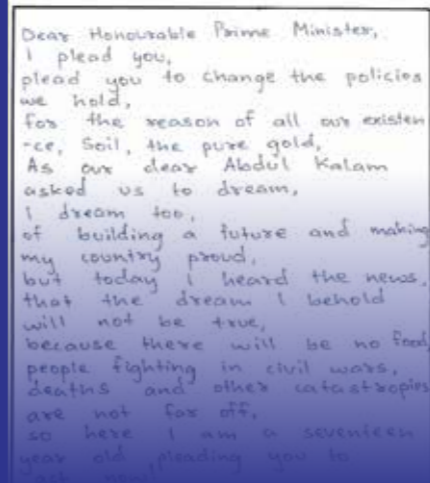 Dear Honourable Prime Minister,
I plead you,
plead you to change the policies
we hold,
for the reason of all our existen
-ce, Soil, the pure gold,
As our dear Abdul Kalam
asked us to dream,
I dream too,
of building a future and making
my country proud,
but today I heard the news,
that the dream I behold
will not be true,
because there will be no food,
people fighting in civil wars,
deaths and other catastropies
are not far off,
so here I am a seventeen
year old, pleading you to
act now!